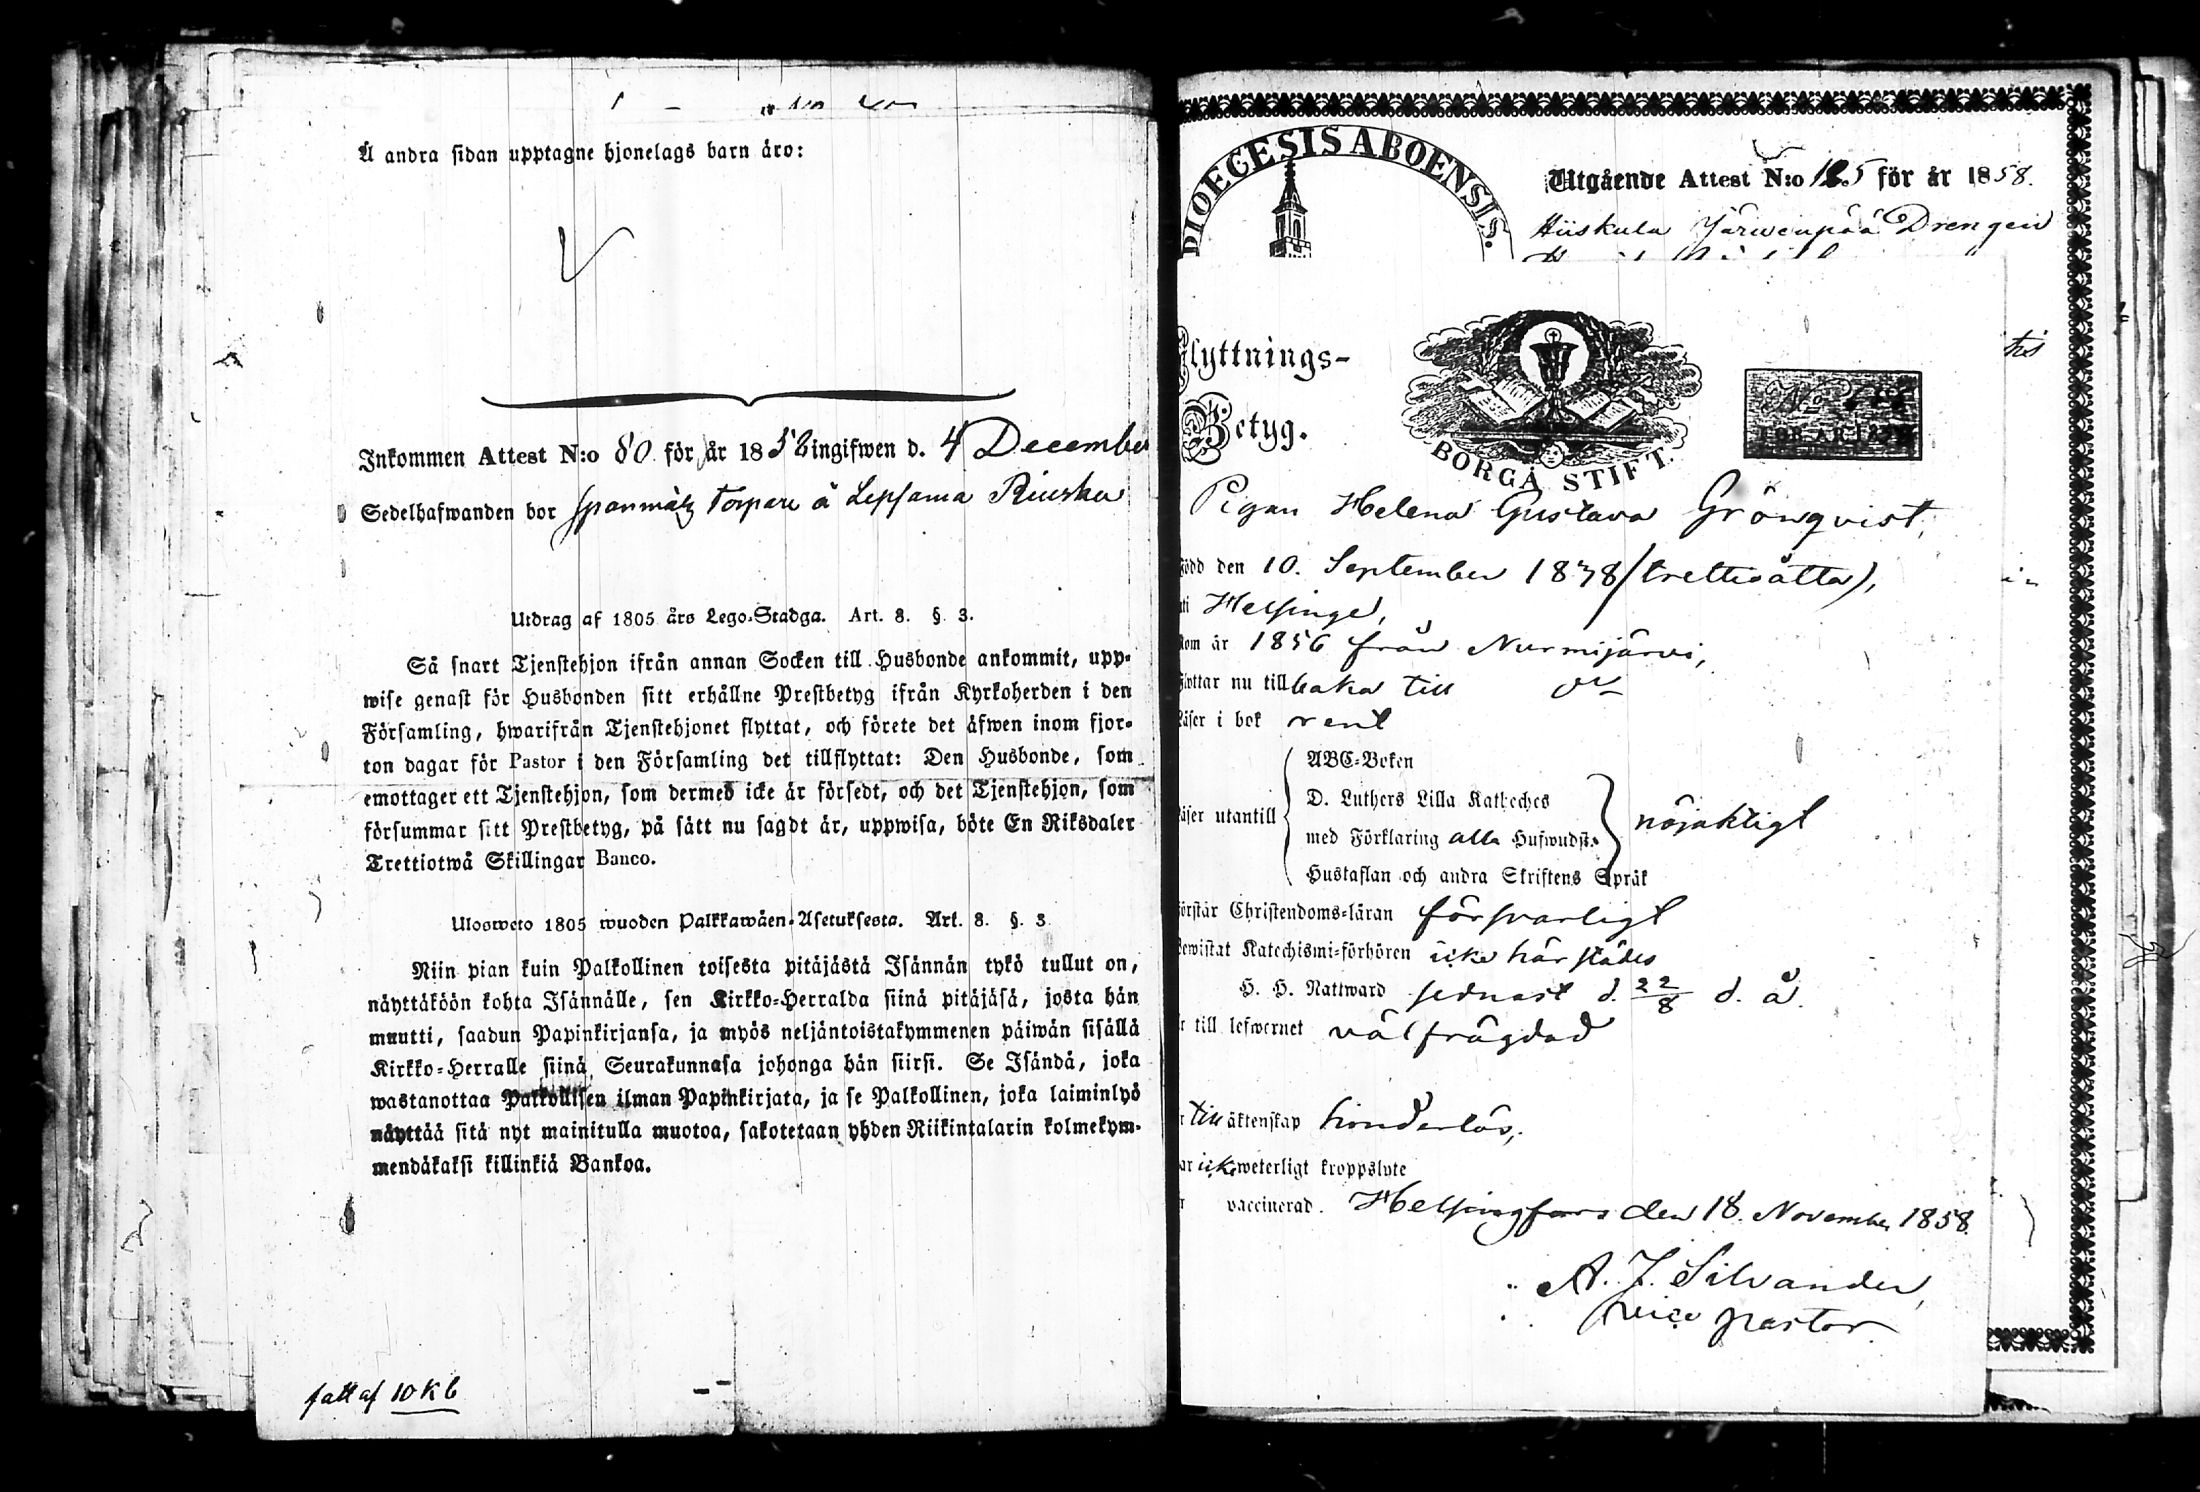 Å andra sidan upptagne hjonelags barn äro:
Inkommen Attest N:o 80 för år 1858 ingifwen d. 4 December
Sedelhafwanden bor Torpare å Lepsama
Utdrag af 1805 års Lego-Stadga. Art. 8. §. 3.
Så snart Tjenstehjon ifrån annan Socken till Husbonde ankommit, upp-
wise genast för Husbonden sitt erhållne Prestbetyg ifrån Kyrkoherden i den
Församling, hwarifrån Tjenstehjonet flyttat, och förete det äfwen inom fjor-
ton dagar för Pastor i den Församling det tillflyttat: Den Husbonde, som
emottager ett Tjenstehjon, som dermed icke är försedt, och det Tjenstehjon, som
försummar sitt Prestbetyg, på sätt nu sagdt är, uppwisa, böte En Riksdaler
Trettiotwå Skillingar Banco.
Ulosweto 1805 wuoden Palkkawäen-Asetuksesta. Art. 8. §. 3.
Niin pian kuin Palkollinen toisesta pitäjästä Isännän tykö tullut on,
näyttäköön kohta Isännälle, sen Kirkko-Herralda siinä pitäjäsä, josta hän
muutti, saadun Papinkirjansa, ja myös neljäntoistakymmenen päiwän sisällä
Kirkko-Herralle siinä Seurakunnasa johonga hän siirsi. Se Isändä, joka
wastanottaa Palkollisen ilman Papinkirjata, ja se Palkollinen, joka laiminlyö
näyttää sitä nyt mainitulla muotoa, sakotetaan yhden Riikintalarin kolmekym-
mendäkaksi killinkiä Bankoa.
fatt af 10 K b
DIOECESIS ABOENSIS.
Utgående Attest N:o 125 för år 1858.
Hiiskula Järwenpää Drengen
Flyttnings-
Betyg.
BORGÅ STIFT.
FÖR ÅR 18
Pigan Helena Gustava Grönqvist,
född den 10. September 1838 (trettioåtta),
uti Helsinge,
kom år 1856 från Nurmijärvi,
Flyttar nu tillbaka till
Läser i bok rent
ABC-Boken
D. Luthers Lilla Katheches
Läser utantill med Förklaring alla Hufwudst. nöjaktigt
Hustaflan och andra Skriftens Språk
Förstår Christendoms-läran försvarligt
Bewistat Katechismi-förhören icke här städes
H. H. Nattward sednast d. 22/8 d. å.
Är till lefwernet välfrägdad
r till äktenskap hinderlös,
ar icke weterligt kroppslyte
r vaccinerad. Helsingfors den 18. November 1858.
A. J. Silvander,
vice pastor.